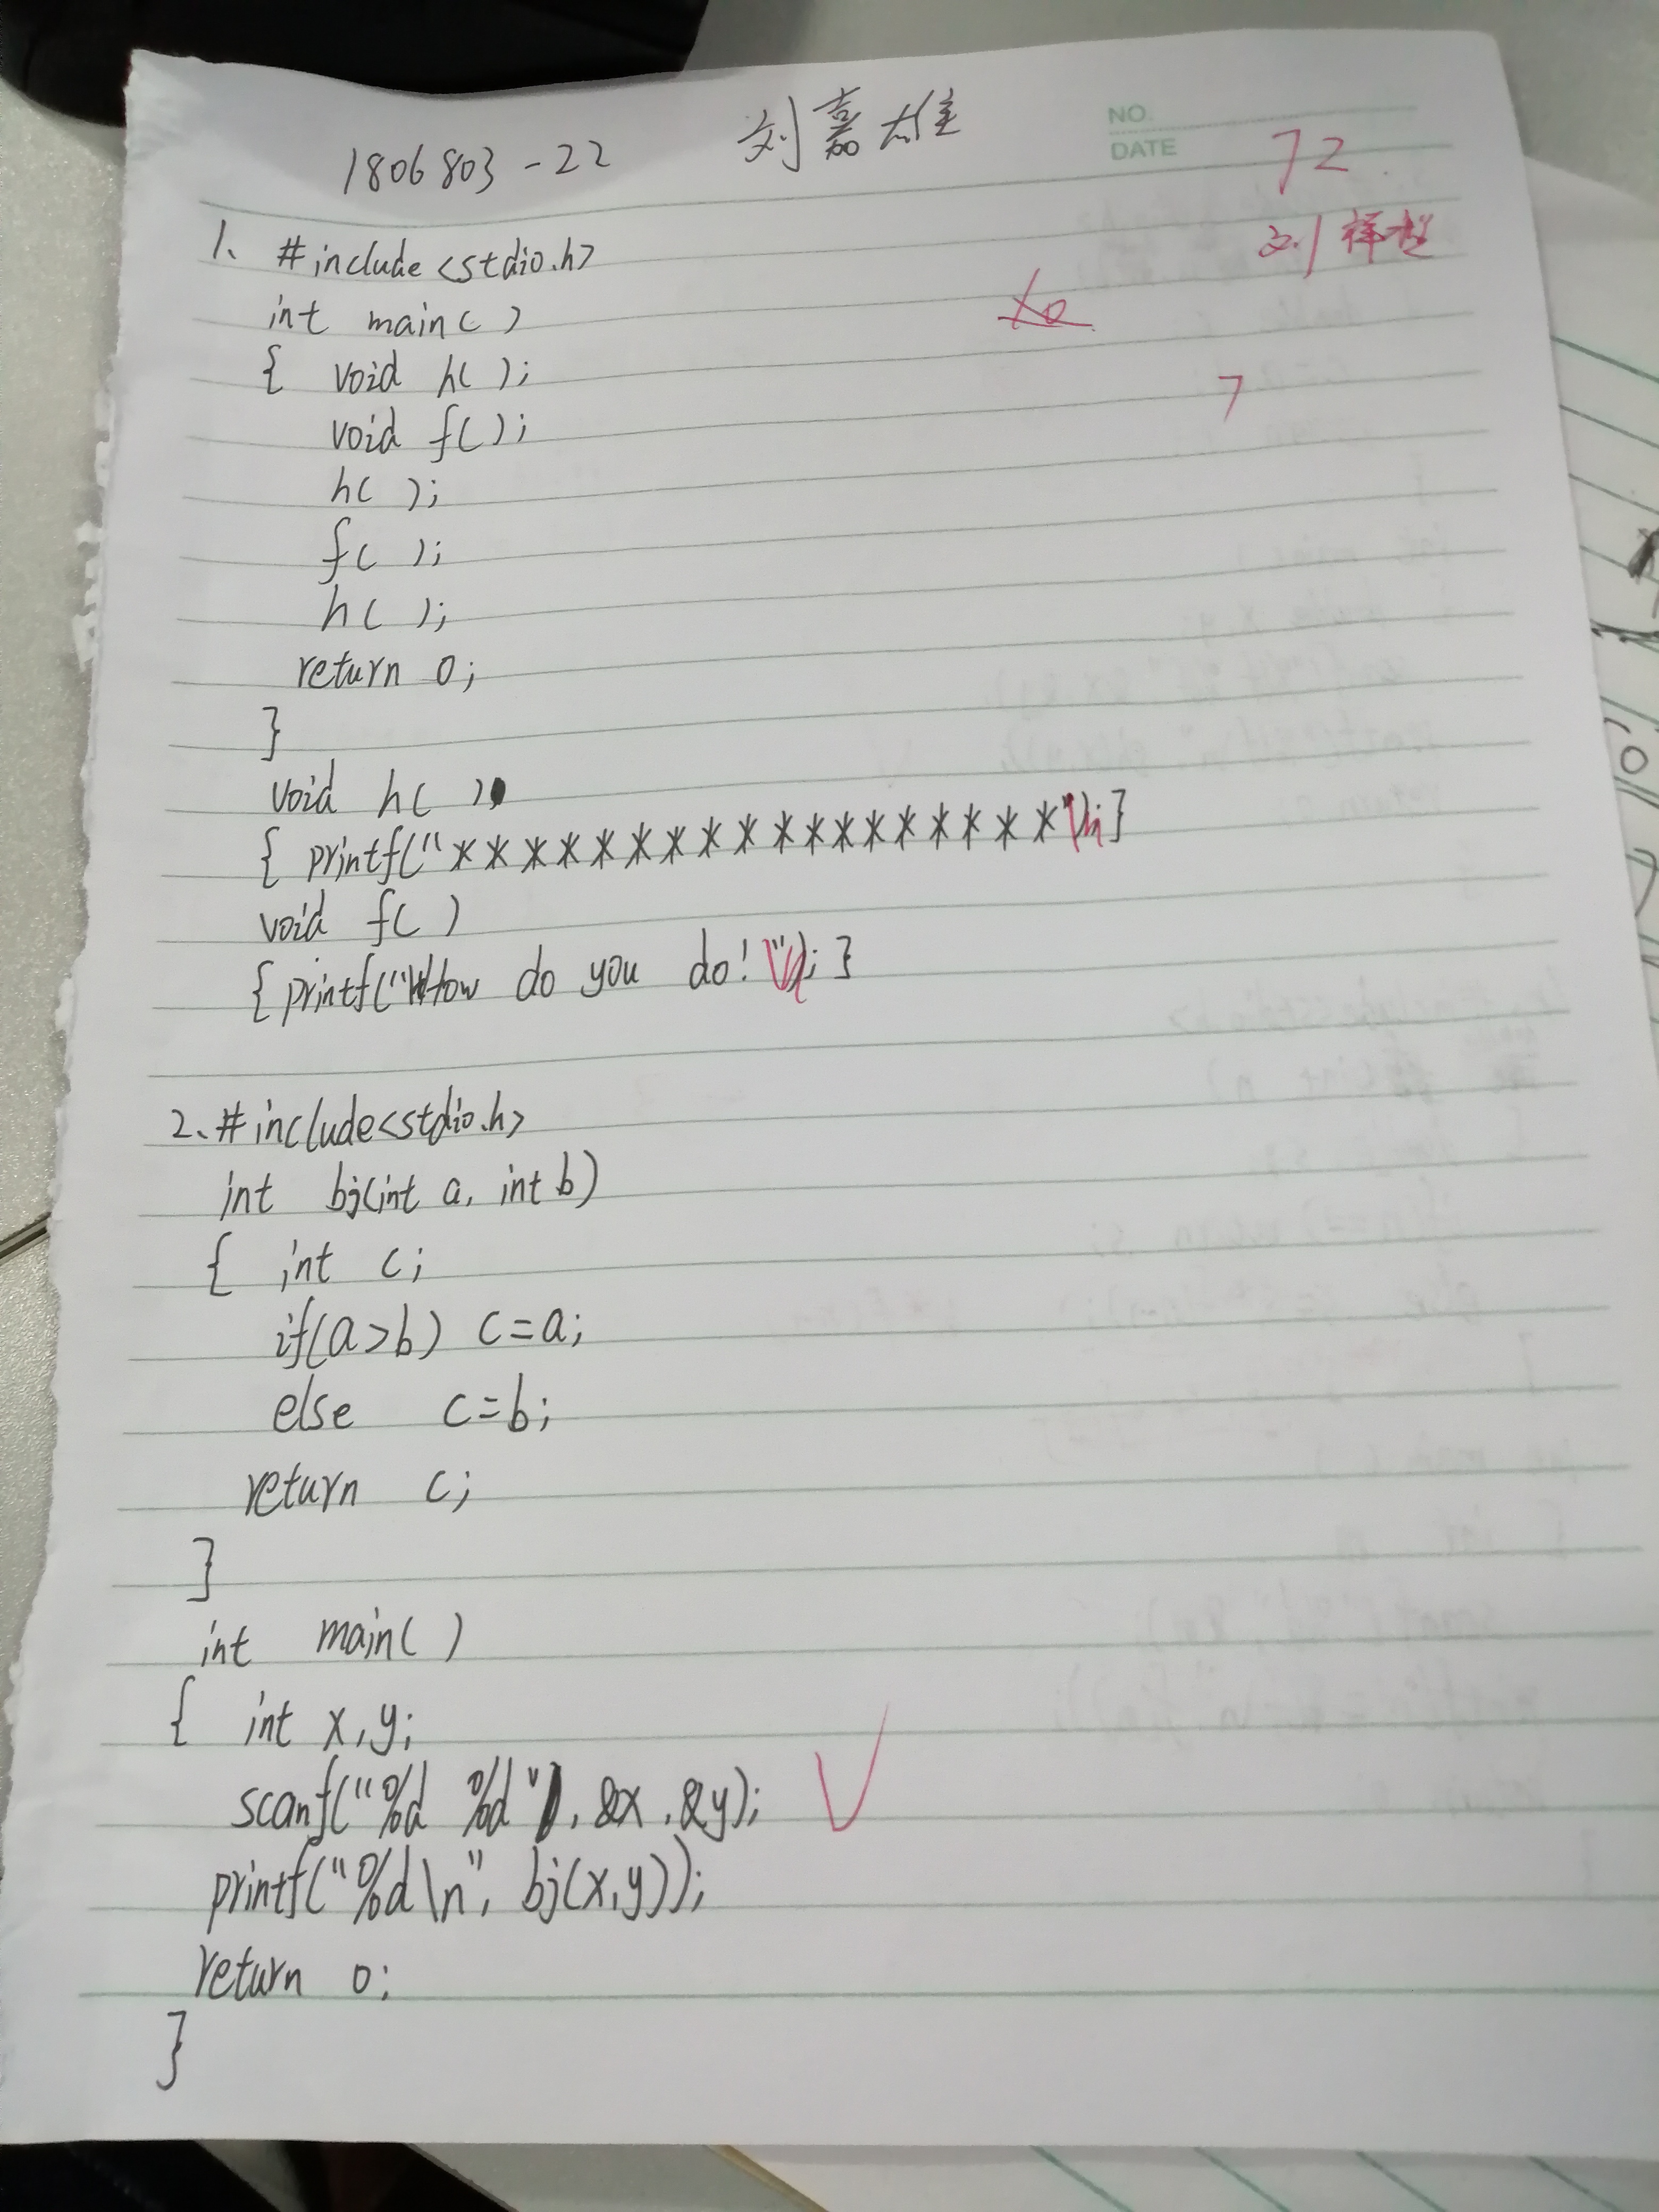 NO.
DATE
1806803-22 刘嘉雄
72
刘祥
1、#include<stdio.h>
int main( )
{ void h( );
7
void f( );
h( );
f( );
h( );
return 0;
}
void h( )
{ printf("******************\n");}
void f( )
{printf("How do you do!\n");}
2、#include<stdio.h>
int bj(int a, int b)
{ int c;
if(a>b) c=a;
else c=b;
return c;
}
int main( )
{ int x,y;
scanf("%d %d", &x,&y);
printf("%d\n", bj(x,y));
return 0;
}